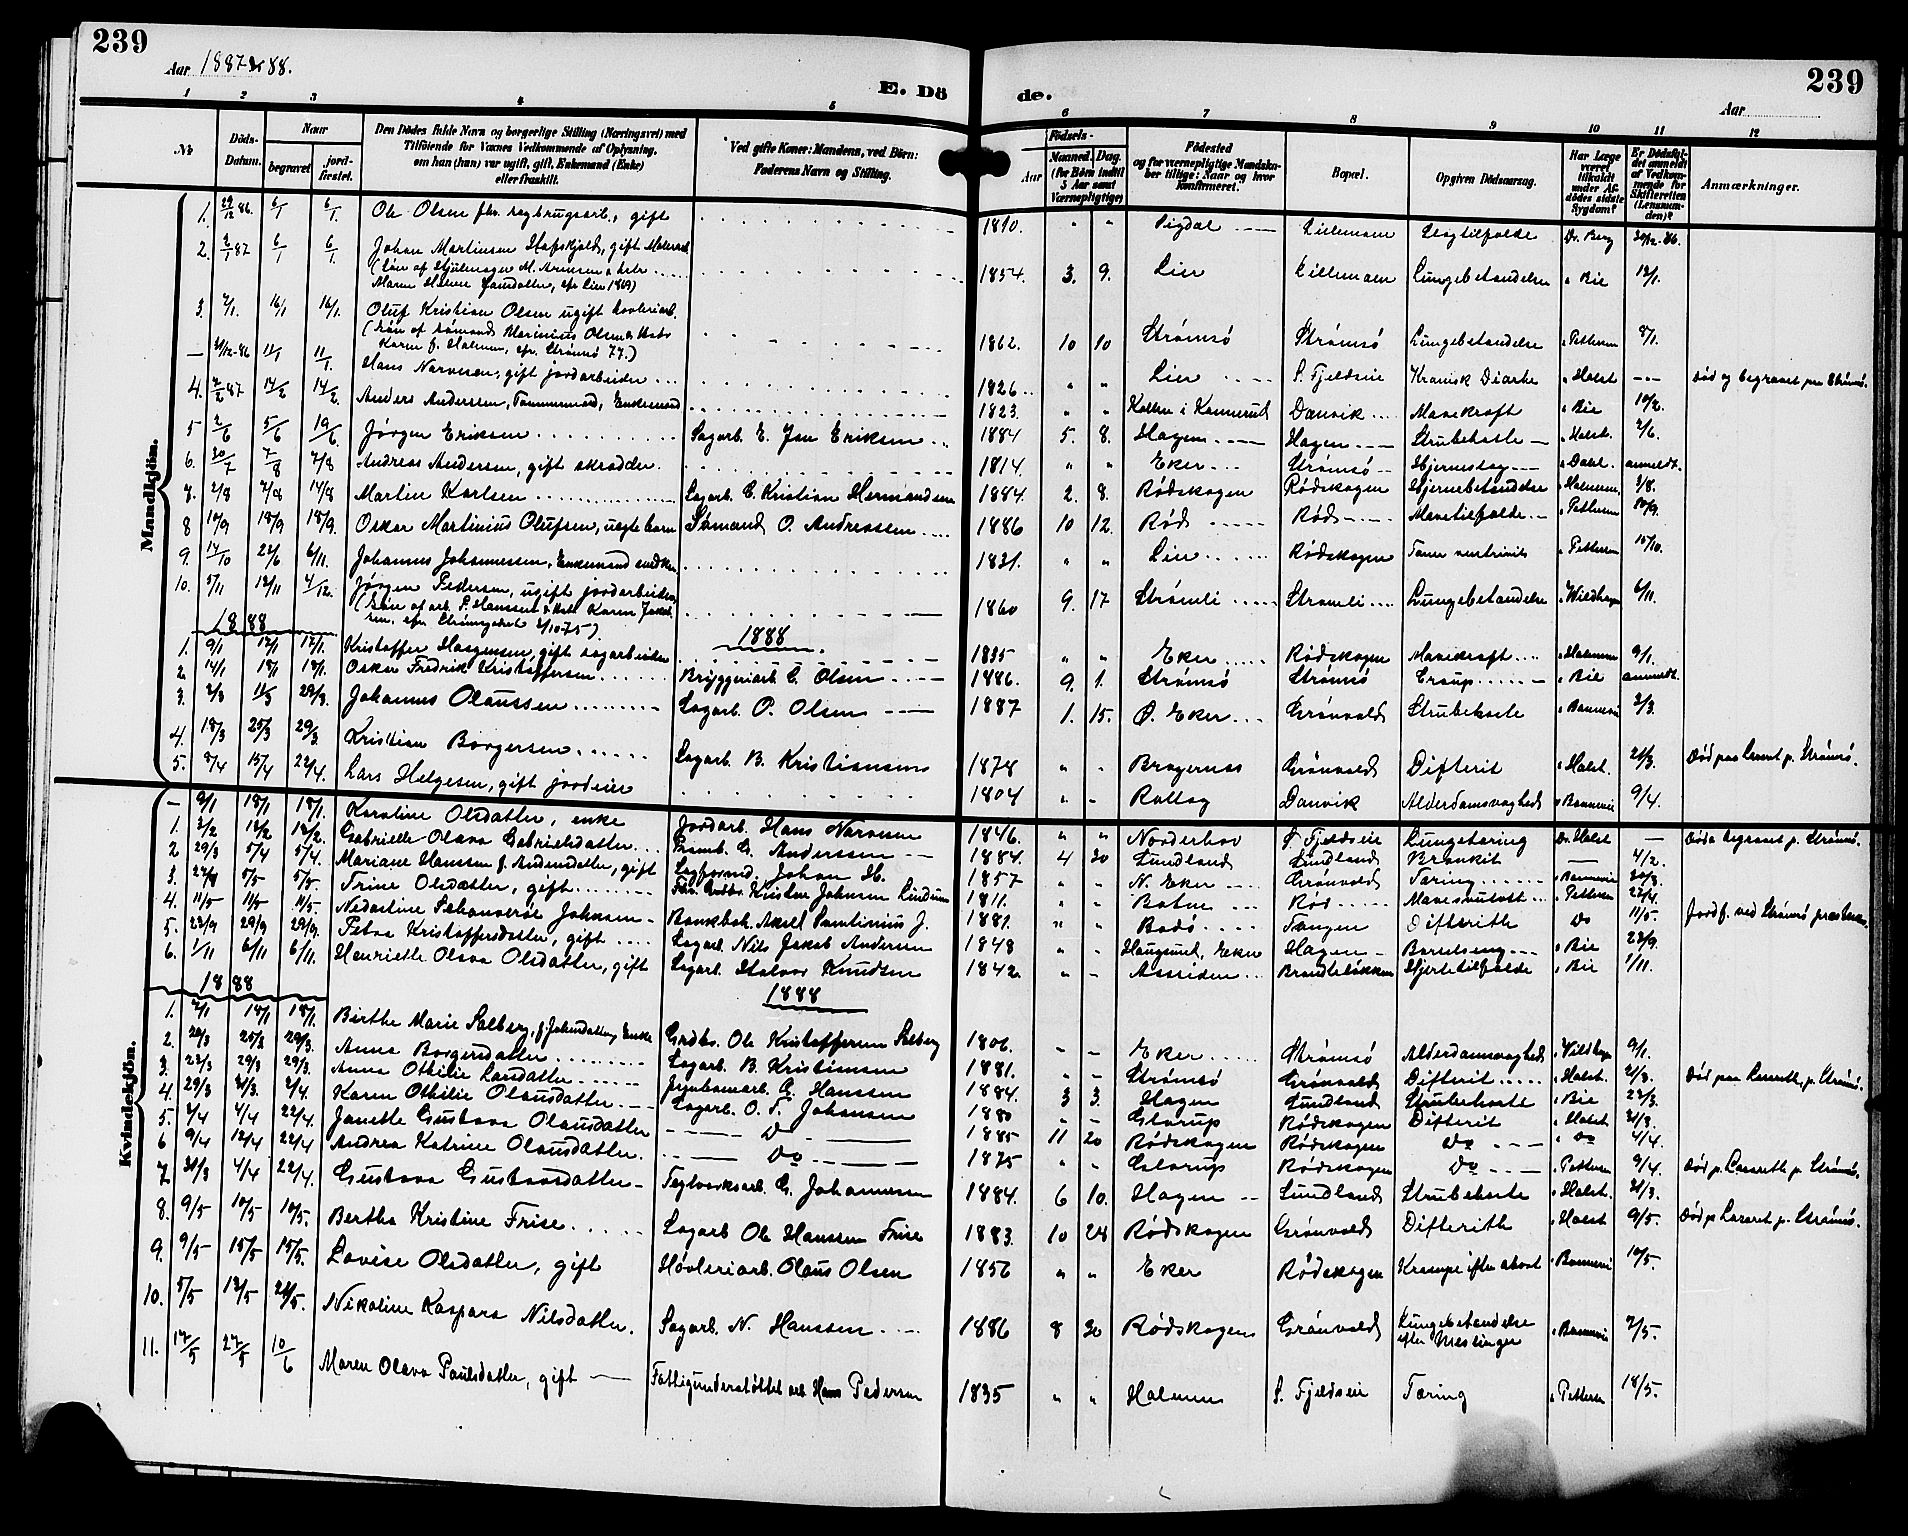 239
239
Aar 1887 & 88.
E. Dö de.
Aar
1 2 3 4 5 6 7 8 9 10 11 12
No
Døds-Datum.
Naar begravet jordfæstet.
Den Dödes fulde Navn og borgerlige Stilling (Næringsvei) med Tilföiende for Voxnes Vedkommende af Oplysning, om han (hun) var ugift, gift, Enkemand (Enke) eller fraskilt.
Ved gifte Koner: Mandens, ved Börn: Faderens Navn og Stilling.
Födsels- Aar Maaned. Dag. (for Børn indtil 5 Aar samt Værnepligtige)
Födested og for værnepligtige Mandskaber tillige: Naar og hvor konfirmeret.
Bopæl.
Opgiven Dödsaarsag.
Har Læge været tilkaldt under Afdødes sidste Sygdom?
Er Dødsfaldet anmeldt af Vedkommende for Skifteretten (Lensmanden)?
Anmærkninger.
Mandkjön.
1. 29/12 86. 6/1 6/1. Ole Olsen fhv. sagbrugsarb., gift 1810. " " Sigdal Lillemoen Slagtilfælde Dr. Berg 30/12-86.
2. 2/1 87 6/1 6/1. Johan Martinsen Stafskjold, gift
(Søn af Hjulmager M. Arnesen & Hstr.
Maren Helene Jansdatter, efr. Lier 1869) 1854. 3. 9. Lier Lillemoen Lungebetændelse " Bie 12/1.
3. 7/1. 16/1 16/1. Oluf Kristian Olsen ugift høvleriarb.
(Søn af sømand Marinius Olsen & Hstr.
Karen f. Halmen, efr. Strømsø 77.) 1862. 10 10 Strømsø Strømsø Lungebetændelse " Pettersen 8/1.
— 31/12-86 11/1 11/1. Hans Narvesen, gift jordarbeider 1826 " " Lier S. Fjeldseie Kronisk Diarhe " Holst --- Død og begravet paa Strømsø.
4. 7/2 87 14/2 14/2. Anders Andersen, Tømmermand, Enkemand 1823. " " Kollen i Konnerud Danvik Mavekræft " Bie 10/2.
5 2/6 5/6 19/6. Jørgen Eriksen Sagarb. E. Jan Eriksen 1884 5. 8. Hagen Hagen Strubehoste " Holst 2/6.
6. 30/7 7/8 7/8 Andreas Andersen, gift skrædder. 1814. " " Eker Strømsø Hjerneslag " Dahl. anmeldt.
7. 2/8 7/8 14/8 Martin Karlsen Sagarb. C. Kristian Hermansen 1884. 2. 8. Rødskogen Rødskogen Hjernebetændelse " Halmen. 3/8.
8 10/9 18/9 18/9. Oskar Martinius Olufsen, uægte barn Sømand O. Andreassen 1886 10 12. Rød Rød Mavetilfælde " Pettersen 10/9.
9. 14/10 22/6 6/11. Johannes Johannesen, Enkemand snedker 1831. " " Lier Rødskogen " Pettersen 15/10.
10. 5/11 12/11 4/12. Jørgen Pedersen, ugift jordarbeider
(Søn af arb. P. Hanssen & Hstr. Karen Jakobsen, efr. 3/10-75). 1860 9. 17 Strømli Strømli Lungebetændelse " Wildhagen 6/11.
1888 1888
1. 9/1 12/1 12/1. Kristoffer Haagensen, gift sagarbeider 1835 " " Eker Rødskogen Mavekræft " Halmen 9/1.
2. 14/1 18/1 18/1. Oskar Fredrik Kristoffersen Bryggeriarb. C. Olsen 1886. 9. 1. Strømsø Strømsø Croup " Bie anmeldt.
3. 2/3 11/3 29/3. Johannes Olaussen Sagarb. P. Olsen 1887 1. 15. Ø. Eker Grønvold Strubehoste " Bannevi 3/3.
4. 18/3 25/3 29/3. Kristian Borgersen Sagarb. B. Kristiansen 1878 " " Bragernes Grønvold Difterit " Holst. 21/3. Død paa Lasaret p. Strømsø.
5. 8/4 15/4 22/4. Lars Helgesen, gift jordeier 1804 " " Rollag Danvik Alderdomsvaghed " Bannevi 9/4.
Kvindekjön.
— 9/1 18/1 18/1. Karoline Olsdatter, enke Jordarb. Hans Narvesen 1846 " " Norderhov S. Fjeldseie Lungetæring Dr. Holst — Død & begravet p. Strømsø.
1. 3/2 12/2 12/2. Gabrielle Olava Gabrielsdatter G. Andersen 1884. 4 20 Lundland Lundland Bronkit — 4/2.
2 29/3 5/4 5/4. Mariane Hanssen f. Andersdatter, gift Johan H. 1857 " " N. Eker Grønvold Tæring " Bannevi 30/3.
3. 27/4 5/5 5/5. Trine Olsdatter, gift Kristen Johnsen Lindum 1811. " " Botne Rød " Pettersen 27/4.
4. 11/5 11/5 11/5. Johnsen Bankbok. Aksel Santinius J. 1881. " " Bodø Tangen Difterith Do 11/5. Jordf. ved Strømsø præsten.
5. 23/9 29/9 29/9. Petra Kristoffersdatter, gift Sagarb. Nils Jakob Andersen 1848 " " Haugsund, Eker Hagen Barselseng " Bie 23/9.
6. 1/11 6/11 6/11. Henriette Olava Olsdatter, gift Sagarb. Halvor Knudsen 1842. " " Assiden Brandtsløkken Hjertetilfælde " Bie 1/11.
1888 1888
1. 7/1 18/1 18/1. Birthe Marie Solberg, f. Johnsdatter, Enke Grdbr. Ole Kristoffersen Solberg 1806. " " Eker Strømsø Alderdomsvaghed " Wildhagen 9/1.
2. 20/3 25/3 29/3. Anna Borgersdatter Sagarb. B. Kristiansen 1881. " " Strømsø Grønvold Difterit " Holst. 21/3. Død paa Lasareth, p. Strømsø.
3. 23/3 29/3 29/3. Anna Othilie Larsdatter G. Hanssen 1884. 3 3. Hagen Lundland Strubehoste " Bie 23/3.
4. 29/3 31/3. 2/4. Karen Othilie Olausdatter Sagarb. O. T. Johansen 1880 " " Glorup Rødskogen Difterit " Holst. 31/3.
5. 2/4 4/4 22/4. Janette Gustava Olausdatter — Do — 1885 11 20 Rødskogen Rødskogen Do " Do 4/4.
6 9/4 12/4 22/4 Andrea Katrine Olausdatter. — Do — 1875 " " Glorup Rødskogen Do " Pettersen 9/4. Død p. Lasareth p. Strømsø.
7. 31/3 4/4 22/4 Gustava Gustavsdatter Teglværksarb. G. Johannesen 1884. 6 10. Hagen Lundland Strubehoste " Holst. 31/3.
8. 9/5 10/5 10/5. Bertha Kristine Frise Sagarb. Ole Hanssen Frise 1883. 10 24 Rødskogen Grønvold Difterith " Holst 9/5. Død p. Lasaret p. Strømsø.
9. 9/5 15/5 15/5. Lovise Olsdatter, gift Høvleriarb. Olaus Olsen 1856 " " Eker Rødskogen Krampe efter abort " Bannevi 10/5.
10. 5/5 13/5 21/5. Nikoline Kaspara Nilsdatter. Sagarb. N. Hanssen 1886 8 30 Rødskogen Grønvold Lungebetændelse efter Meslinger " Bannevi 7/5.
11. 17/5 27/5 10/6 Maren Olava Paulsdatter, gift Fattigunderstøttet arb. Hans Pedersen 1835 " " Halmen S. Fjeldseie Tæring " Pettersen 18/5.